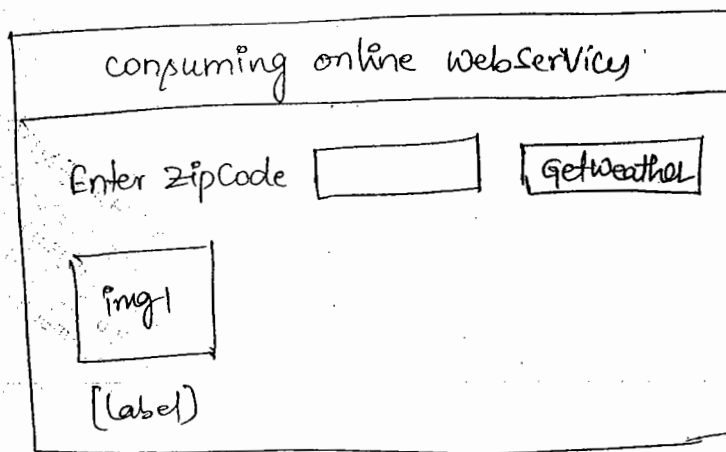 consuming online webservices
Enter ZipCode GetWeather
img1
[Label)